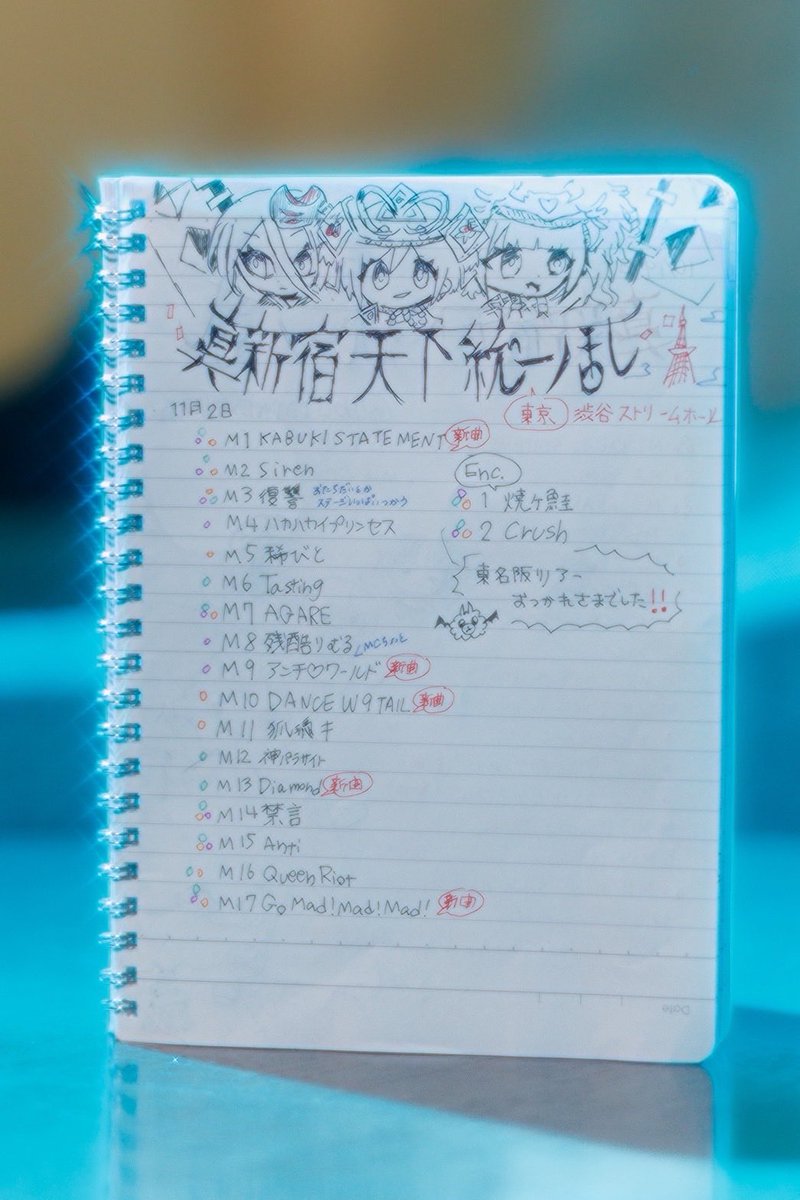 真新宿天下統一ノ乱し
11月2日
東京 渋谷ストリームホール
M1 KABUKI STATEMENT 新曲
M2 Siren
M3 復讐 おたちだいとか
ステージいっぱいつかう
M4 ハカハカイプリンセス
M5 稀びと
M6 Tasting
M7 AGARE
M8 残酷りむる MCちょっと
M9 アンチ♡ワールド 新曲
M10 DANCE W9TAIL 新曲
M11 狐憑キ
M12 神パラサイト
M13 Diamond 新曲
M14 禁言
M15 Anti
M16 Queen Riot
M17 Go Mad!Mad!Mad! 新曲
Enc.
1 焼ヶ鮭
2 Crush
東名阪ツアー
おつかれさまでした!!
Date